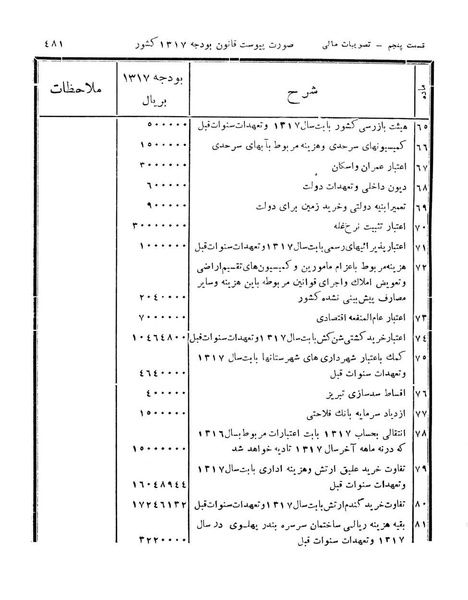 قسمت پنجم – تصویبات مالی صورت پیوست قانون بودجه ۱۳۱۷ کشور ۴۸۱
ماده شرح بودجه ۱۳۱۷ بریال ملاحظات
۶۵ هیئت بازرسی کشور بابت سال ۱۳۱۷ وتعهدات سنوات قبل ۵۰۰۰۰۰
۶۶ کمیسیونهای سرحدی وهزینه مربوط بآبهای سرحدی ۱۵۰۰۰۰۰
۶۷ اعتبار عمران واسکان ۳۰۰۰۰۰۰
۶۸ دیون داخلی وتعهدات دولت ۶۰۰۰۰۰
۶۹ تعمیرابنیه دولتی وخرید زمین برای دولت ۹۰۰۰۰۰
۷۰ اعتبار تثبیت نرخ غله ۳۰۰۰۰۰۰۰
۷۱ اعتبار پذیرائیهای رسمی بابت سال ۱۳۱۷ وتعهدات سنوات قبل ۱۰۰۰۰۰۰
۷۲ هزینه مربوط باعزام مامورین و کمیسیون های تقسیم اراضی
وتعویض املاک واجرای قوانین مربوطه باین هزینه وسایر
مصارف پیش بینی نشده کشور ۲۰۴۰۰۰۰
۷۳ اعتبار عام المنفعه اقتصادی ۷۰۰۰۰۰۰
۷۴ اعتبار خرید کشتی شن کش بابت سال ۱۳۱۷ وتعهدات سنوات قبل ۱۰۴۶۴۸۰۰
۷۵ کمک باعتبار شهرداری های شهرستانها بابت سال ۱۳۱۷
وتعهدات سنوات قبل ۴۶۴۰۰۰۰
۷۶ اقساط سدسازی تبریز ۴۰۰۰۰۰
۷۷ ازدیاد سرمایه بانک فلاحتی ۱۵۰۰۰۰۰
۷۸ انتقالی بحساب ۱۳۱۷ بابت اعتبارات مربوط بسال ۱۳۱۶
که درنه ماهه آخر سال ۱۳۱۷ تادیه خواهد شد ۱۵۰۰۰۰۰۰
۷۹ تفاوت خرید علیق ارتش وهزینه اداری بابت سال ۱۳۱۷
وتعهدات سنوات قبل ۱۶۰۴۸۹۴۴
۸۰ تفاوت خرید گندم ارتش بابت سال ۱۳۱۷ وتعهدات سنوات قبل ۱۷۲۴۶۱۳۲
۸۱ بقیه هزینه ریالی ساختمان سرسره بندر پهلوی در سال
۱۳۱۷ وتعهدات سنوات قبل ۳۲۲۰۰۰۰